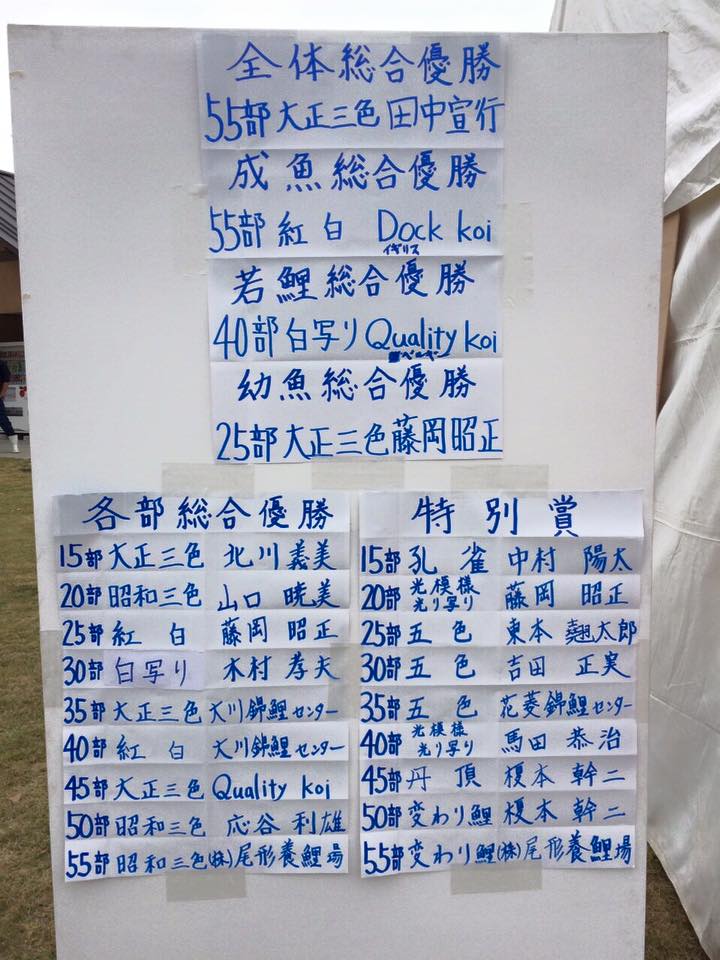 全体総合優勝
55部 大正三色 田中宣行
成魚総合優勝
55部 紅白 Dock koi
イギリス
若鯉総合優勝
40部 白写り Quality koi
ベルギー
幼魚総合優勝
25部 大正三色 藤岡昭正
各部総合優勝
15部 大正三色 北川義美
20部 昭和三色 山口暁美
25部 紅白 藤岡昭正
30部 白写り 木村孝夫
35部 大正三色 大川錦鯉センター
40部 紅白 大川錦鯉センター
45部 大正三色 Quality koi
50部 昭和三色 応谷利雄
55部 昭和三色 (株)尾形養鯉場
特別賞
15部 孔雀 中村陽太
20部 光模様 光り写り 藤岡昭正
25部 五色 東本 太郎
30部 五色 吉田正実
35部 五色 花菱錦鯉センター
40部 光模様 光り写り 馬田恭治
45部 丹頂 榎本幹二
50部 変わり鯉 榎本幹二
55部 変わり鯉 (株)尾形養鯉場